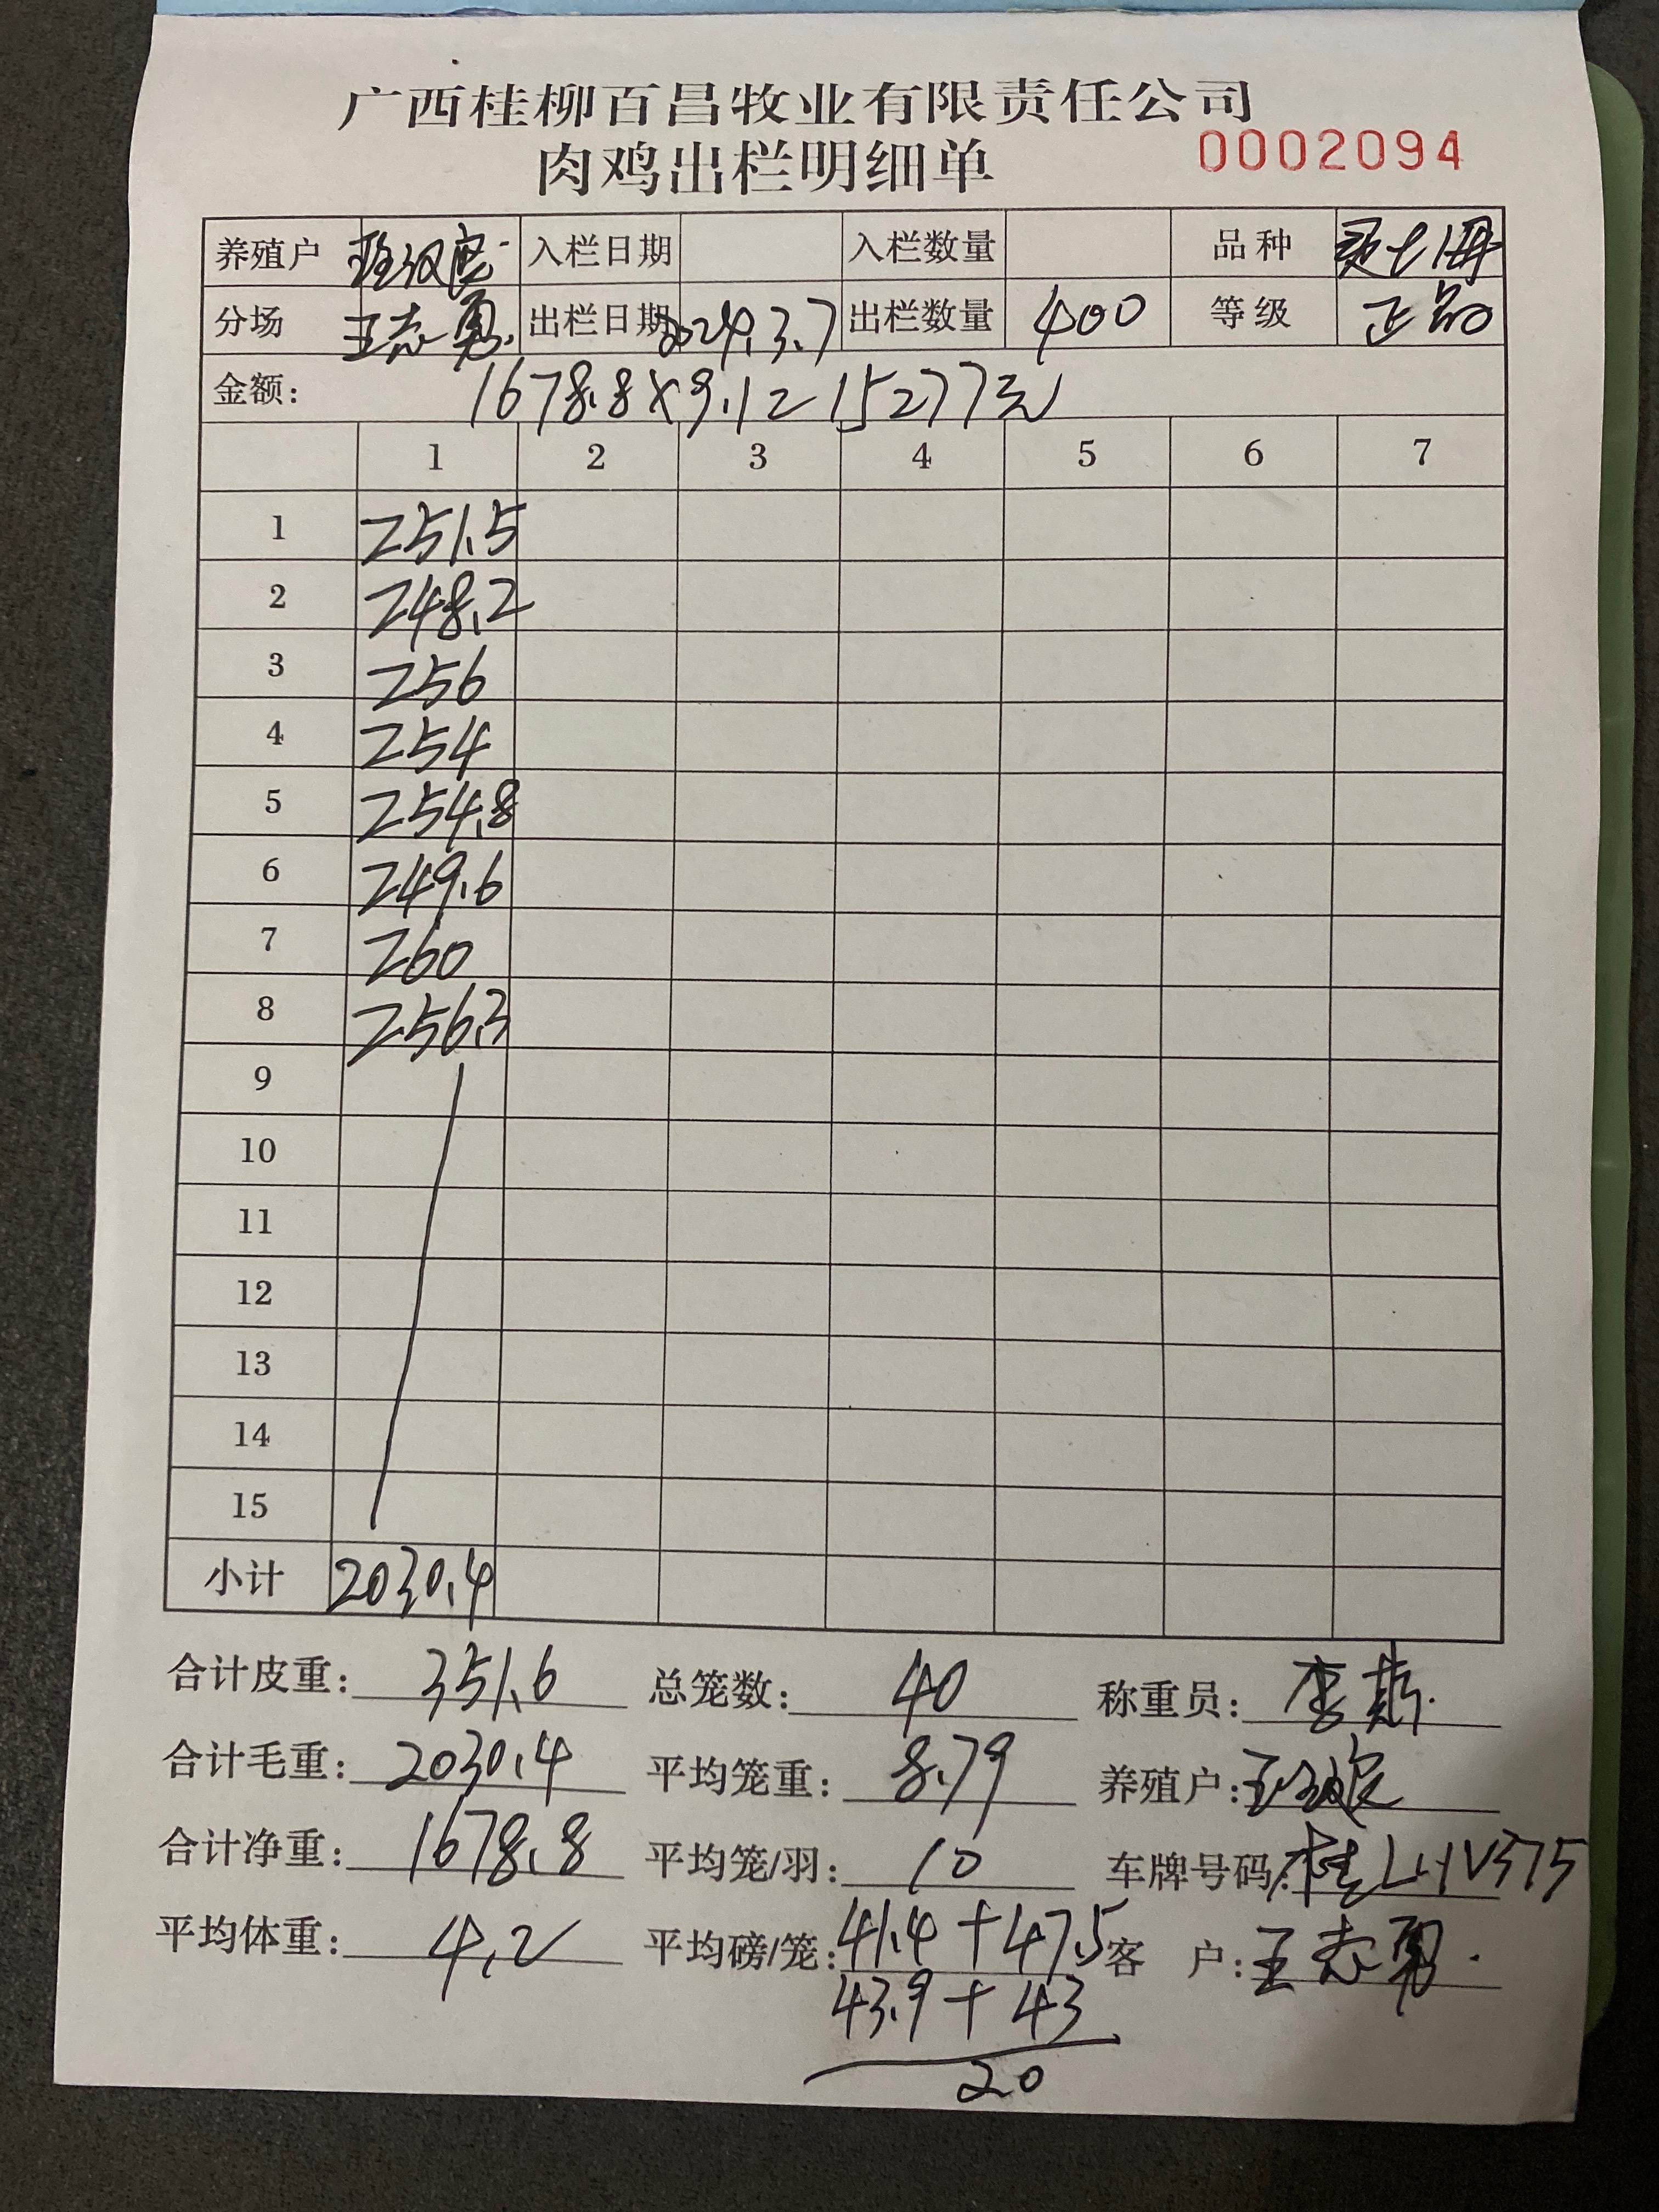 广西桂柳百昌牧业有限责任公司
肉鸡出栏明细单 0002094
养殖户 入栏日期 入栏数量 品种
分场 王志勇. 出栏日期 2024.3.7 出栏数量 400 等级 正品
金额: 1678.8×9.1= 15277元
1 2 3 4 5 6 7
1 251.5
2 248.2
3 256
4 254
5 254.8
6 249.6
7 260
8 256.3
9
10
11
12
13
14
15
小计 2030.4
合计皮重: 351.6 总笼数: 40 称重员: 李
合计毛重: 2030.4 平均笼重: 8.79 养殖户:
合计净重: 1678.8 平均笼/羽: 10 车牌号码: 桂LHV375
平均体重: 4.2 平均磅/笼: 41.4+47.5 客 户: 王志勇.
43.9+43
20